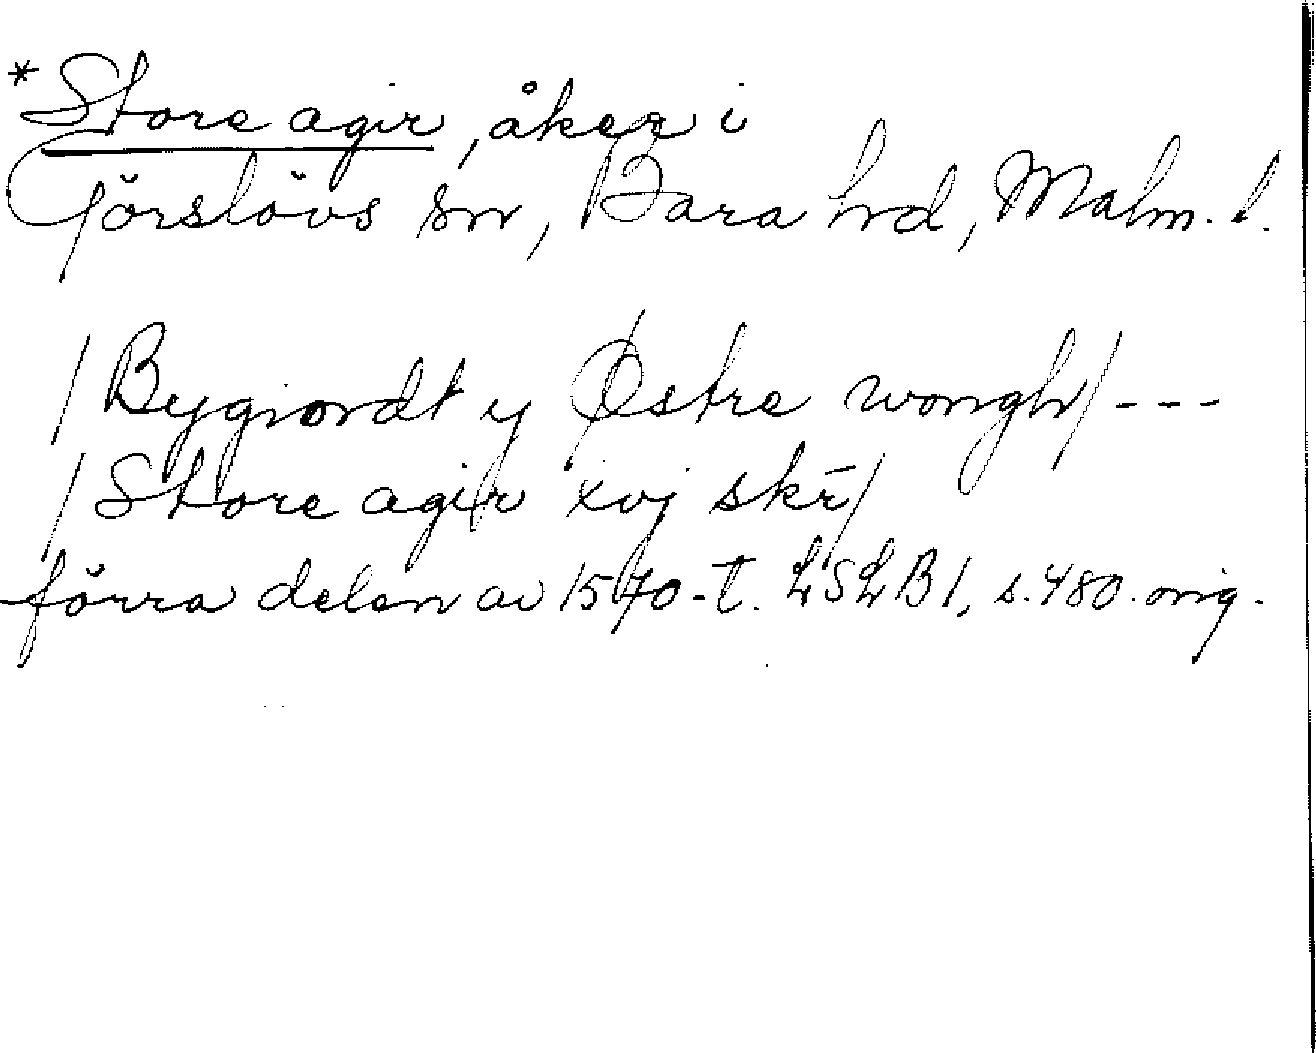 *Store agir, åker i
Görslövs sn, Bara hd, Malm. l.
/Bygiordt y Østre wongh/ ---
/Store agir xvj skr̄/
förra delen av 1570-t. LSLB1, s. 480. orig.